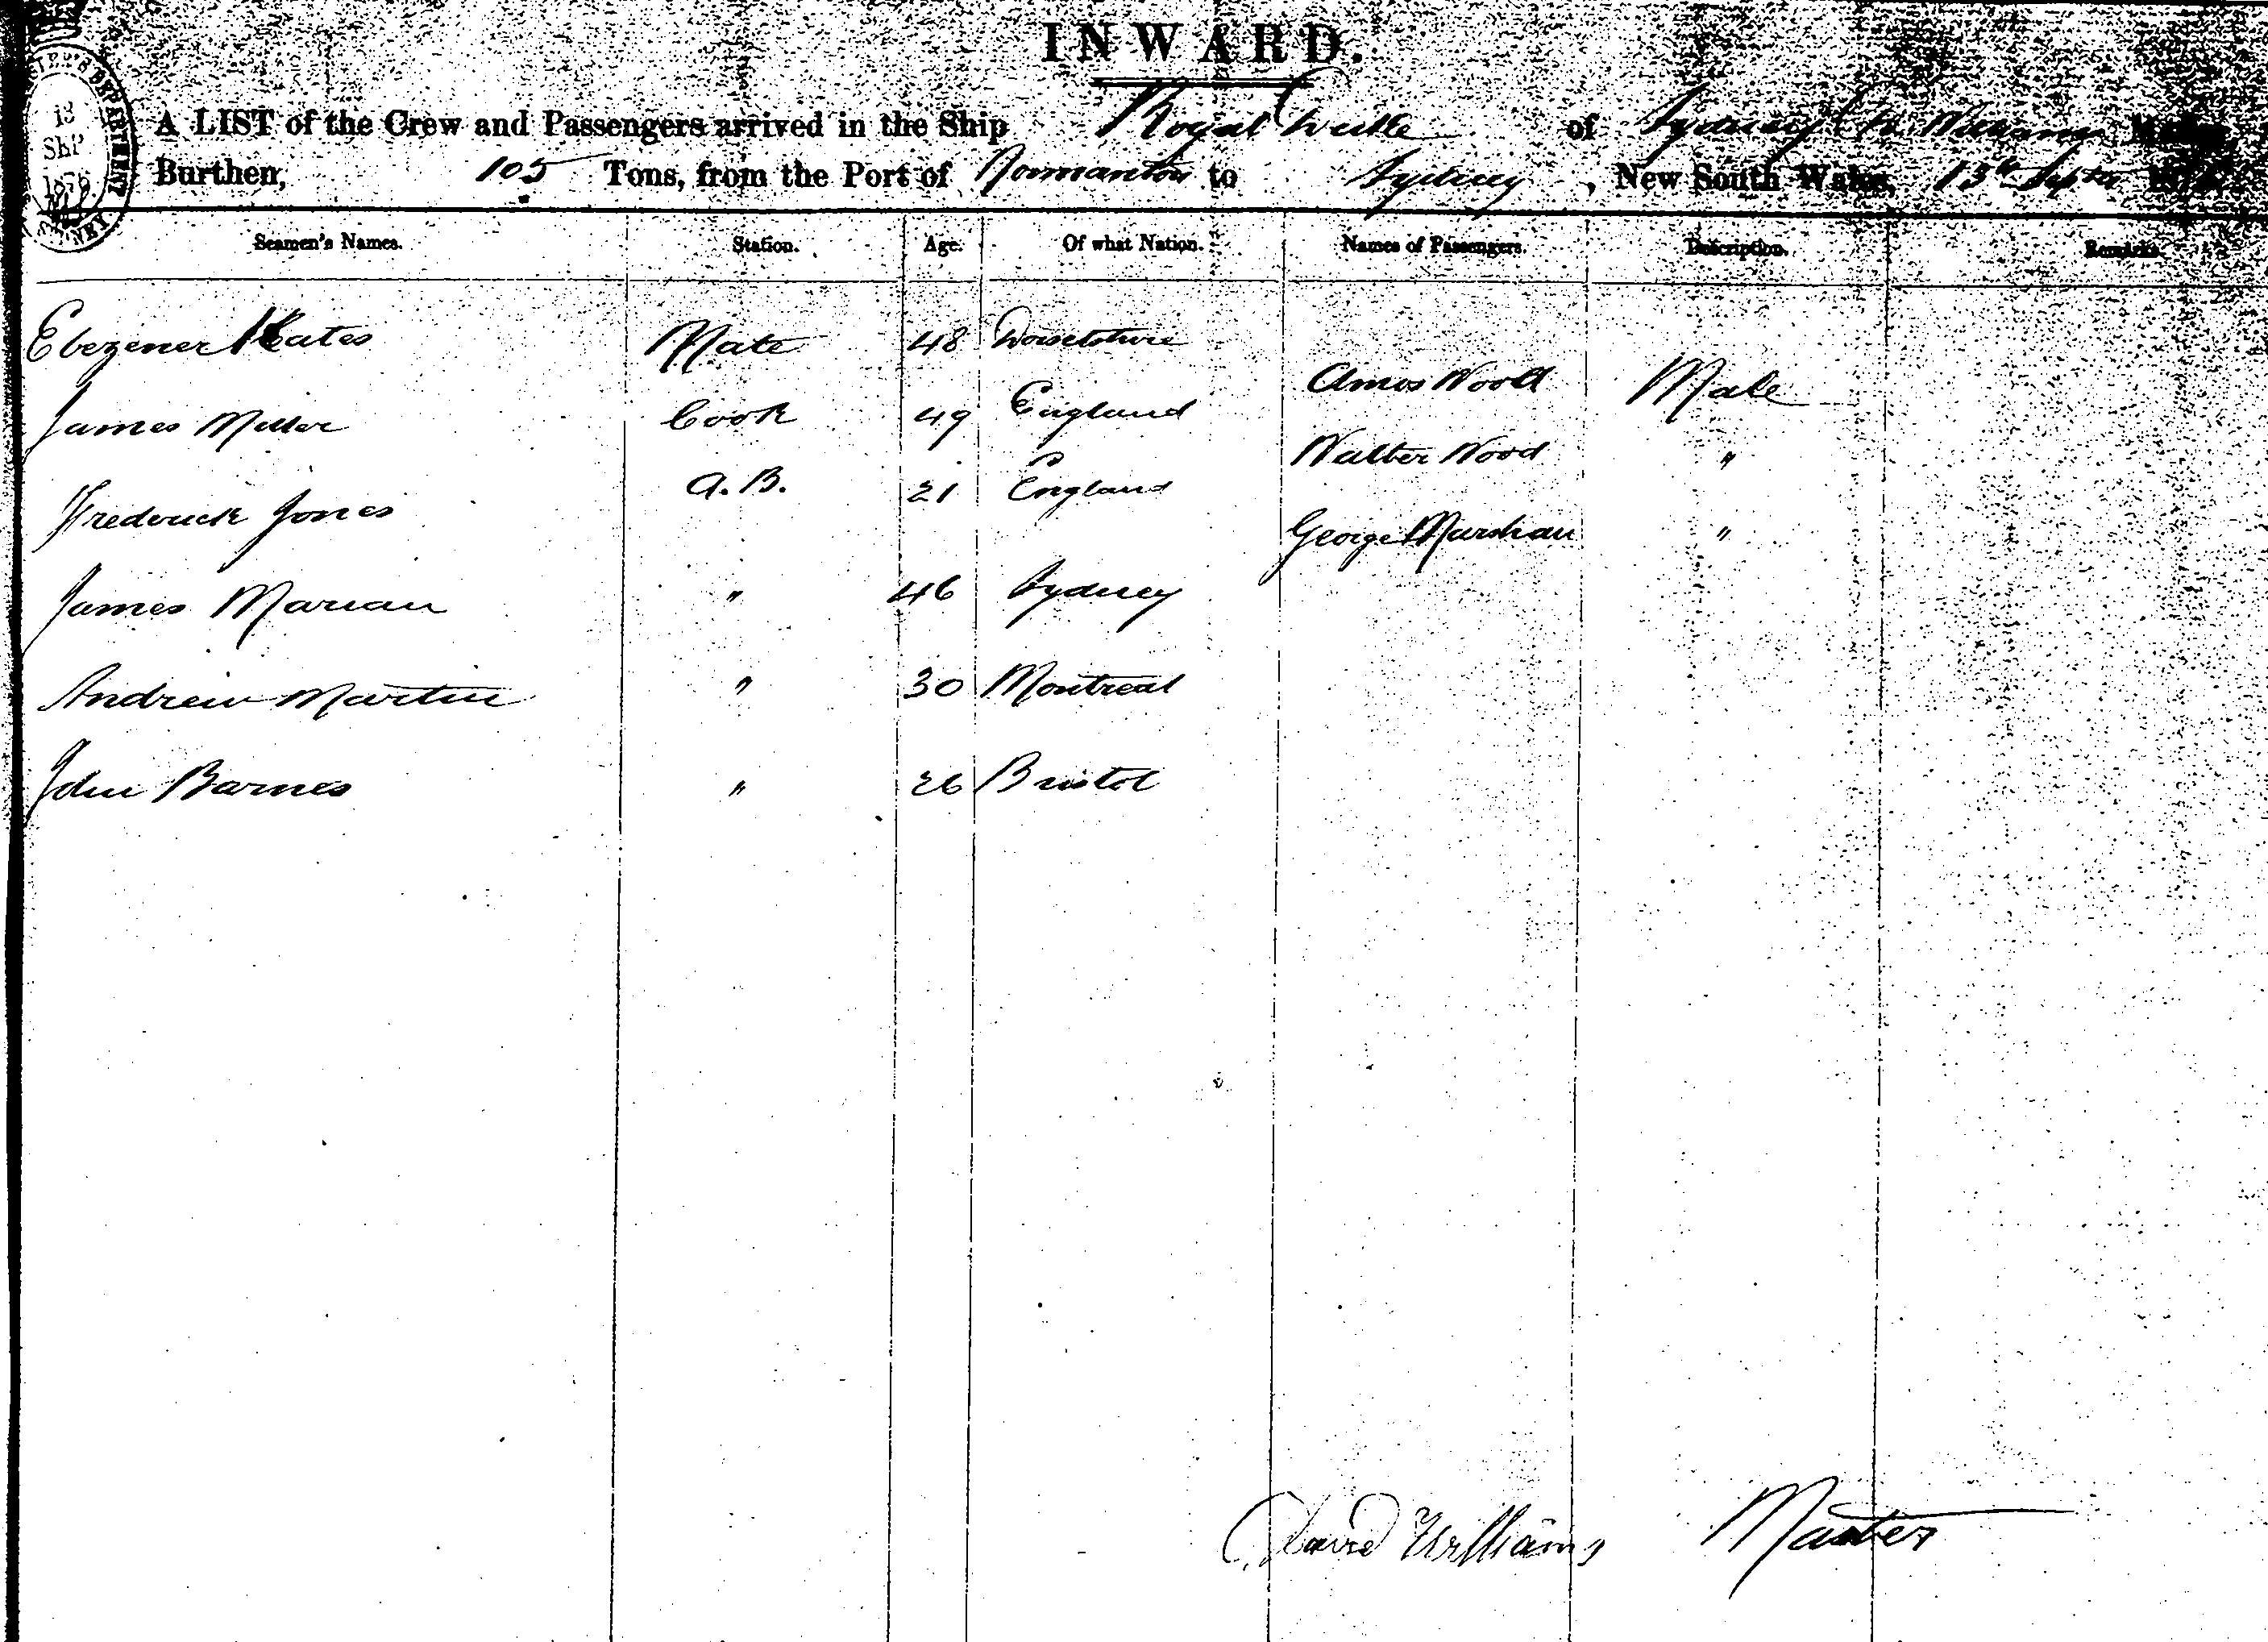 INWARD.
A LIST of the Crew and Passengers arrived in the Ship Royal of Sydney D. Williams Master
Burthen, 105 Tons, from the Port of Normanton to Sydney, New South Wales, 13th Septr
Seamen's Names. Station. Age. Of what Nation. Names of Passengers. Description. Remarks.
Ebezener Kates Mate 48 Dorsetshire
Amos Wood Male
James Miller Cook 49 England
Walter Wood "
Frederick Jones A.B. 21 England
George Marshall "
James Marian " 46 Sydney
Andrew Martin " 30 Montreal
John Barnes " 26 Bristol
David Williams Master